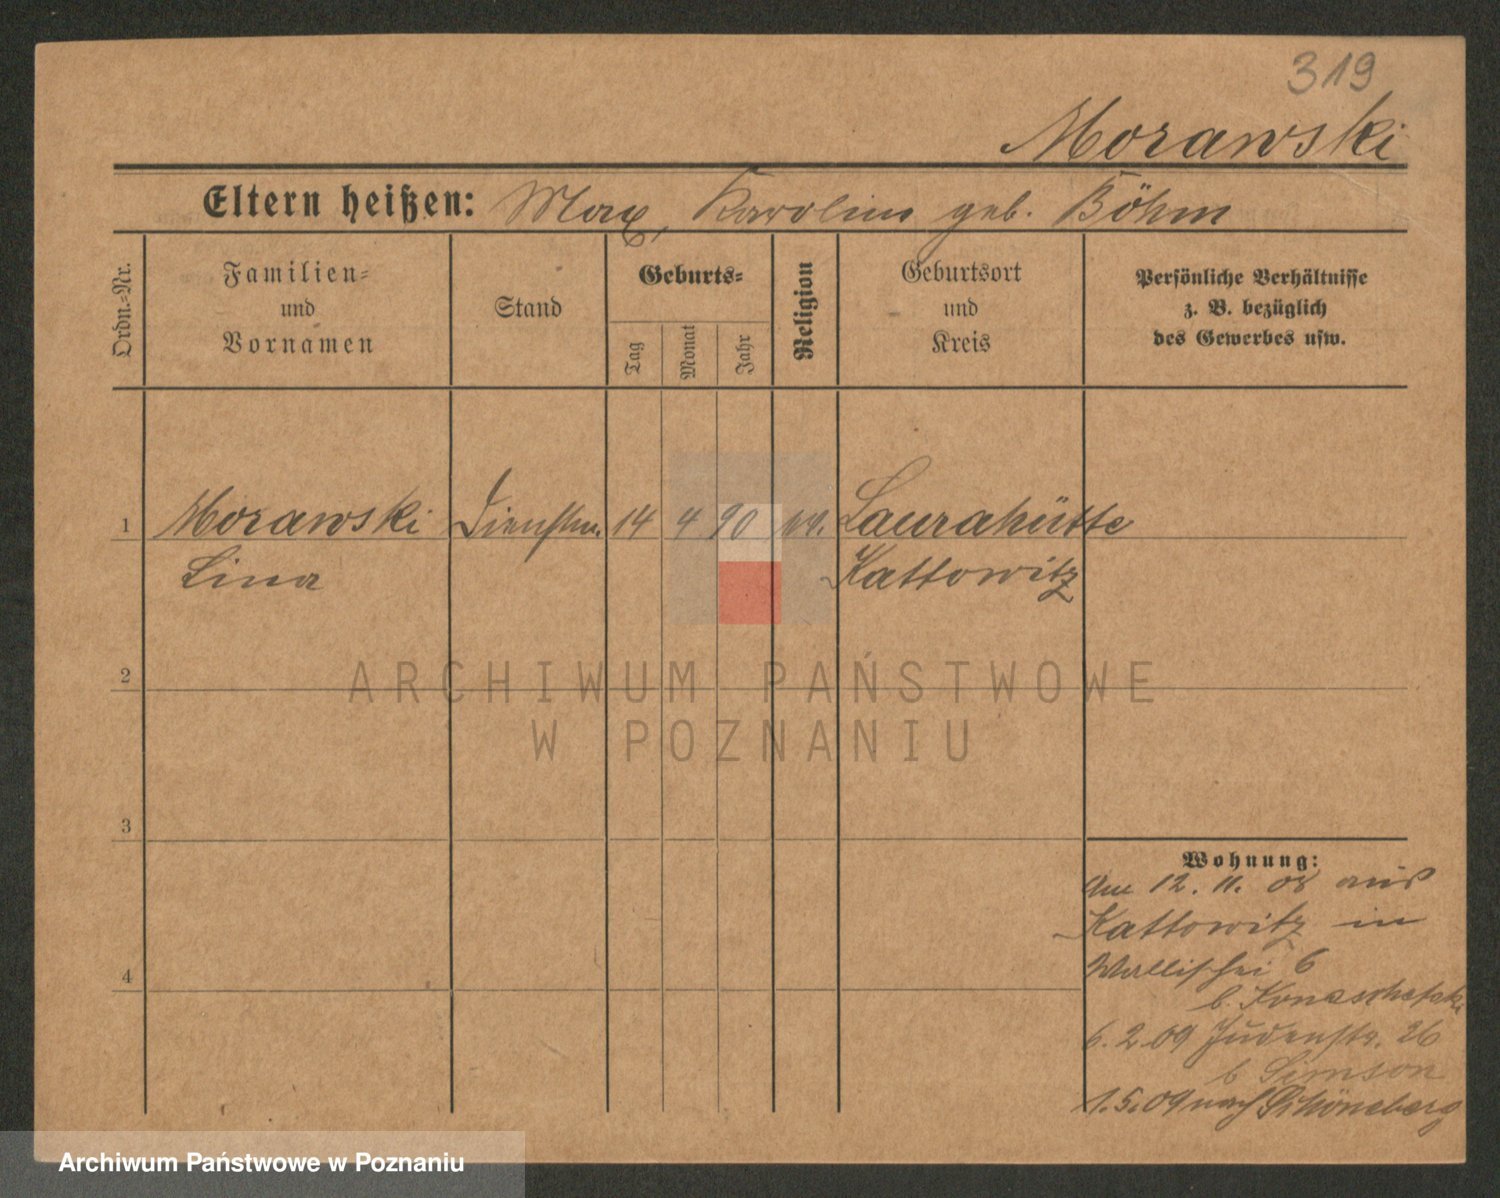 319
Morawski
Eltern heißen: Max, Karoline geb. Böhm
Ordn.-Nr.
Familien-
und
Vornamen
Stand
Geburts-
Tag
Monat
Jahr
Religion
Geburtsort
und
Kreis
Persönliche Verhältnisse
z. B. bezüglich
des Gewerbes usw.
1 Morawski Dienstm. 14 4 90 Laurahütte
Lina Kattowitz
2
3
4
Wohnung:
Am 12. 11. 08 aus
Kattowitz in
Wallischei 6
b.
6. 2 09 Judenstr. 26
b Simson
1. 5. 09 nach Schöneberg
ARCHIWUM PAŃSTWOWE
W POZNANIU
Archiwum Państwowe w Poznaniu